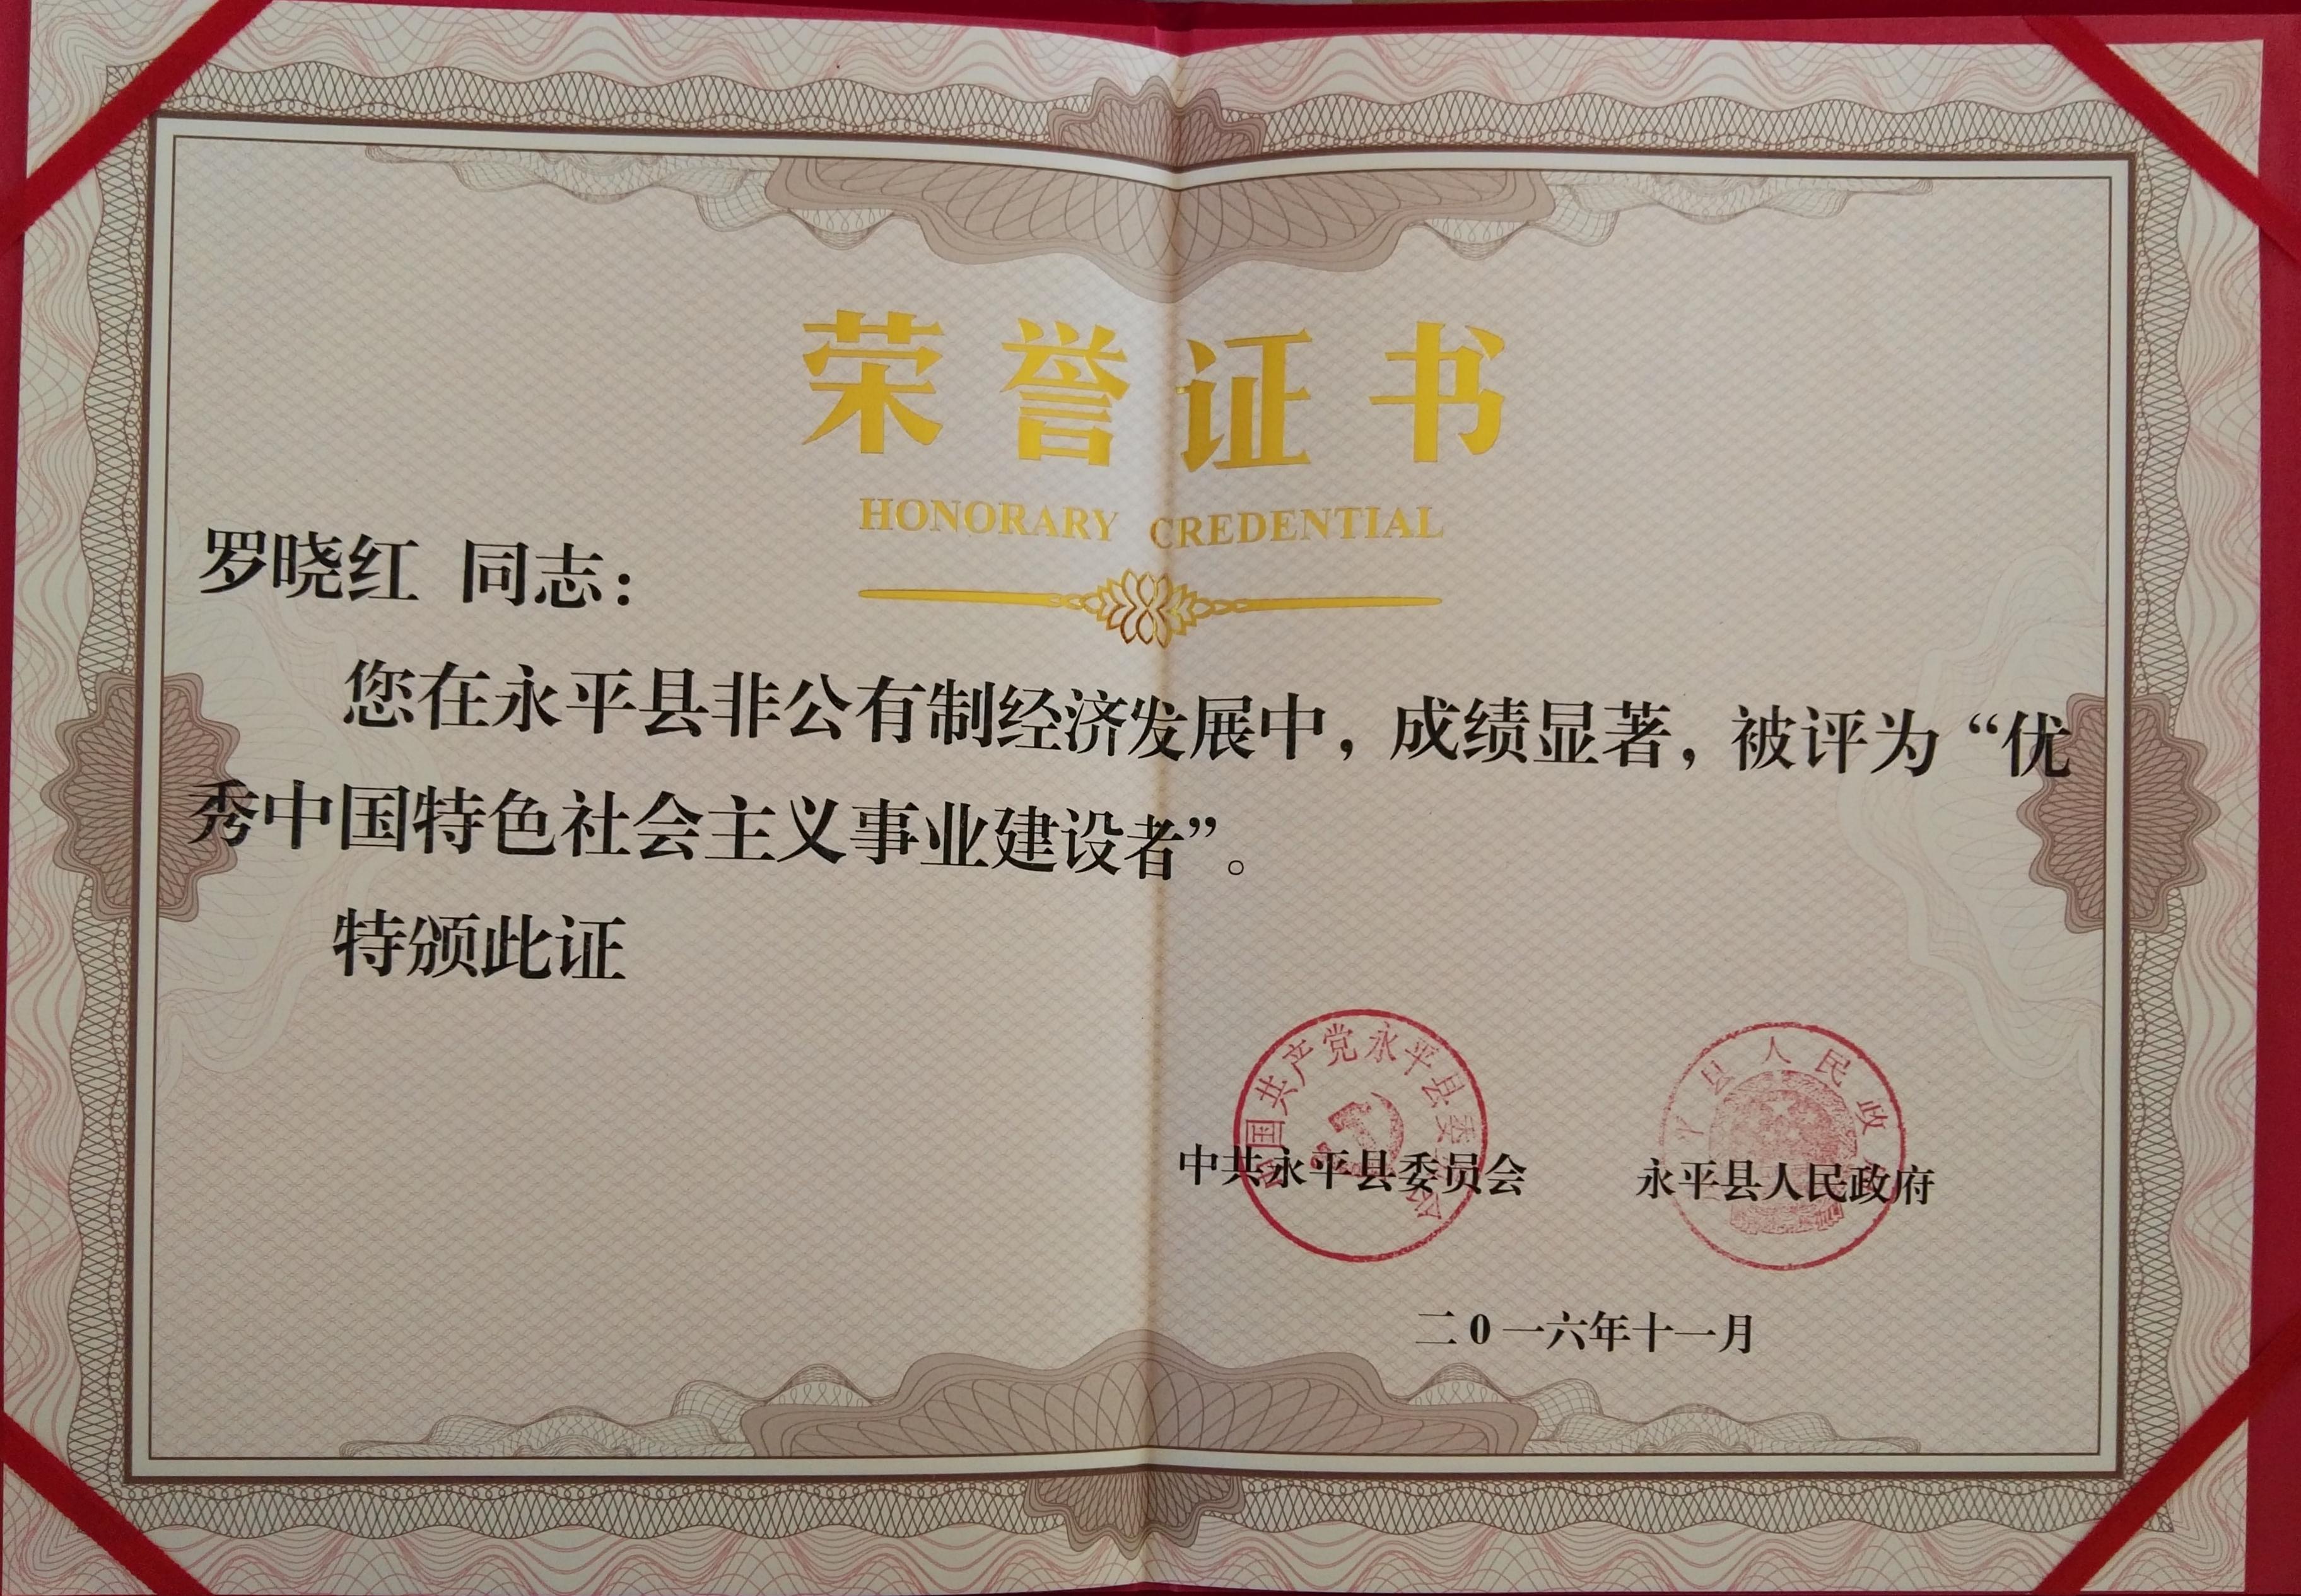 荣誉证书
HONORARY CREDENTIAL
罗晓红 同志：
您在永平县非公有制经济发展中，成绩显著，被评为“优
秀中国特色社会主义事业建设者”。
特颁此证
中国共产党永平县委员会
县人民政
中共永平县委员会 永平县人民政府
二0一六年十一月